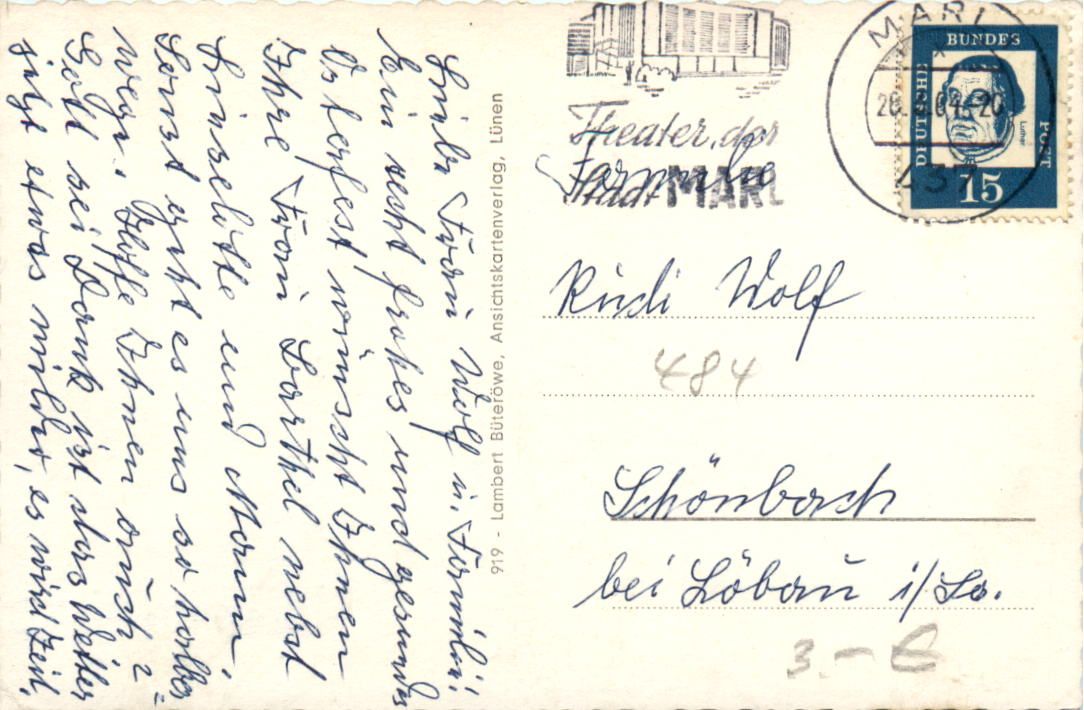 Liebe Frau Wolf u. Familie!
Ein recht frohes und gesundes
Osterfest wünscht Ihnen
Ihre Frau Barthel nebst
Lieselotte und Mann.
Sonst geht es uns so halber
wege. Hoffe Ihnen auch?
Gott sei Dank ist das Wetter
jetzt etwas milder, es wird Zeit.
919 - Lambert Büteröwe, Ansichtskartenverlag, Lünen
Theater der
Stadt MARL
MARL
437
DEUTSCHE BUNDES POST
Luther
15
Familie
Rudi Wolf
484
Schönbach
bei Löbau i/Sa.
3.-